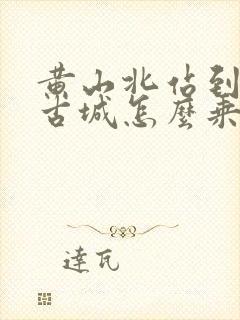 黄山北佔到
古城怎麼乘
達瓦